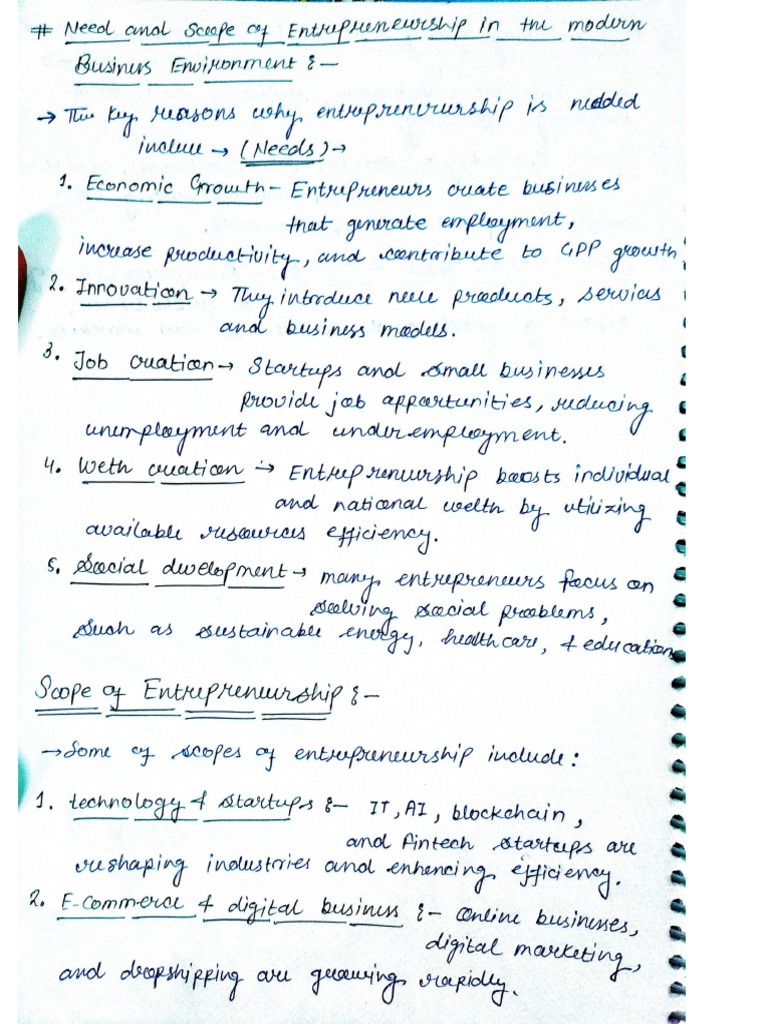 # Need and Scope of Entrepreneurship in the modern
Business Environment :-
→ The key reasons why entreprenerurship is needed
include → (Needs) →
1. Economic Growth - Entrepreneurs create businesses
that generate employment,
increase productivity, and contribute to GPP growth
2. Innovation → They introduce new products, services
and business models.
3. Job creation → Startups and small businesses
provide job apportunities, reducing
unemployment and underemployment.
4. Weth creation → Entreprenurship boosts individual
and national welth by utilizing
available resources efficiency.
5. Social development → many entrepreneurs focus on
solving social problems,
such as sustainable energy, healthcare, & education
Scope of Entrepreneurship :-
→ Some of scopes of entrepreneurship include :
1. technology & startups :- IT, AI, blockchain,
and fintech startups are
reshaping industries and enhencing efficiency.
2. E-commerce & digital business :- online businesses,
digital marketing,
and dropshipping are growing rapidly.